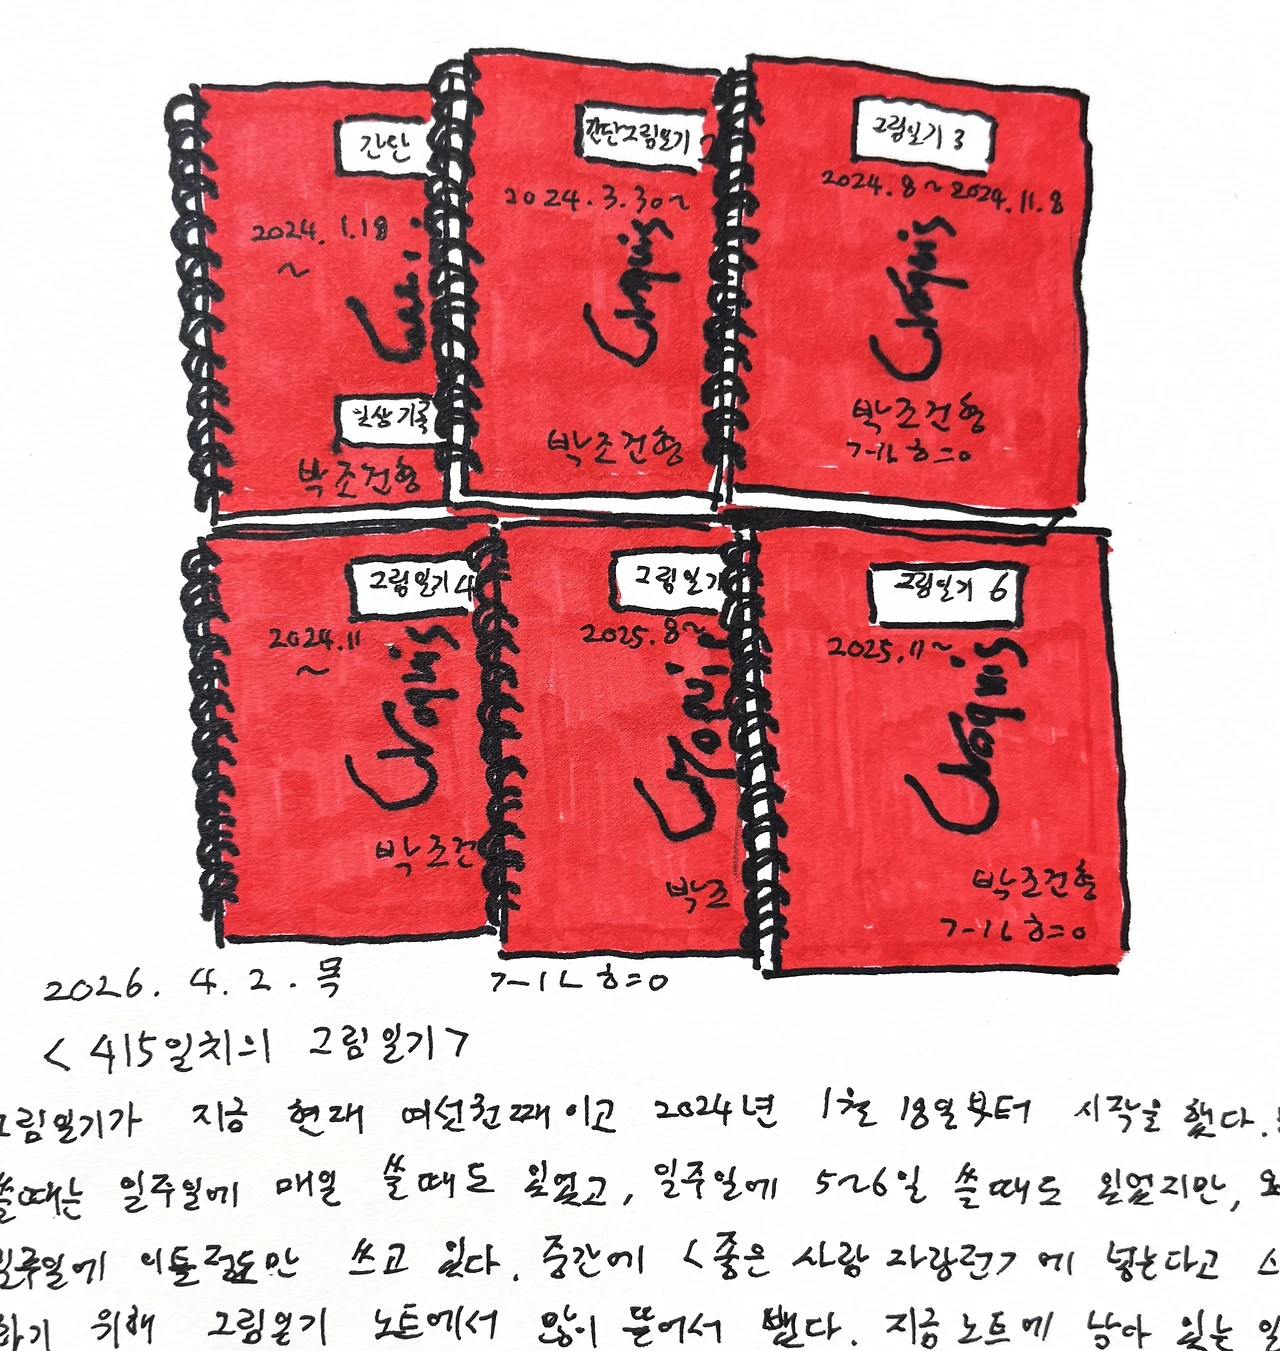 간단
2024. 1.18
~
일상기록
박조건형
간단그림일기
2024.3.30~
Croquis
박조건형
그림일기 3
2024.8~2024.11.8
Croquis
박조건형
그림일기4
2024.11
~
Croquis
박조건
그림일기
2025.8~
박조
그림일기 6
2025.11~
Croquis
박조건형
2026. 4. 2. 목
<415일치의 그림일기>
그림일기가 지금 현재 여섯권째이고 2024년 1월 18일부터 시작을 했다.
쓸때는 일주일에 매일 쓸때도 있었고, 일주일에 5~6일 쓸때도 있었지만,
일주일에 이틀정도만 쓰고 있다. 중간에 <좋은 사람 자랑전>에 넣는다고
하기 위해 그림일기 노트에서 많이 뜯어서 뺐다. 지금 노트에 남아 있는